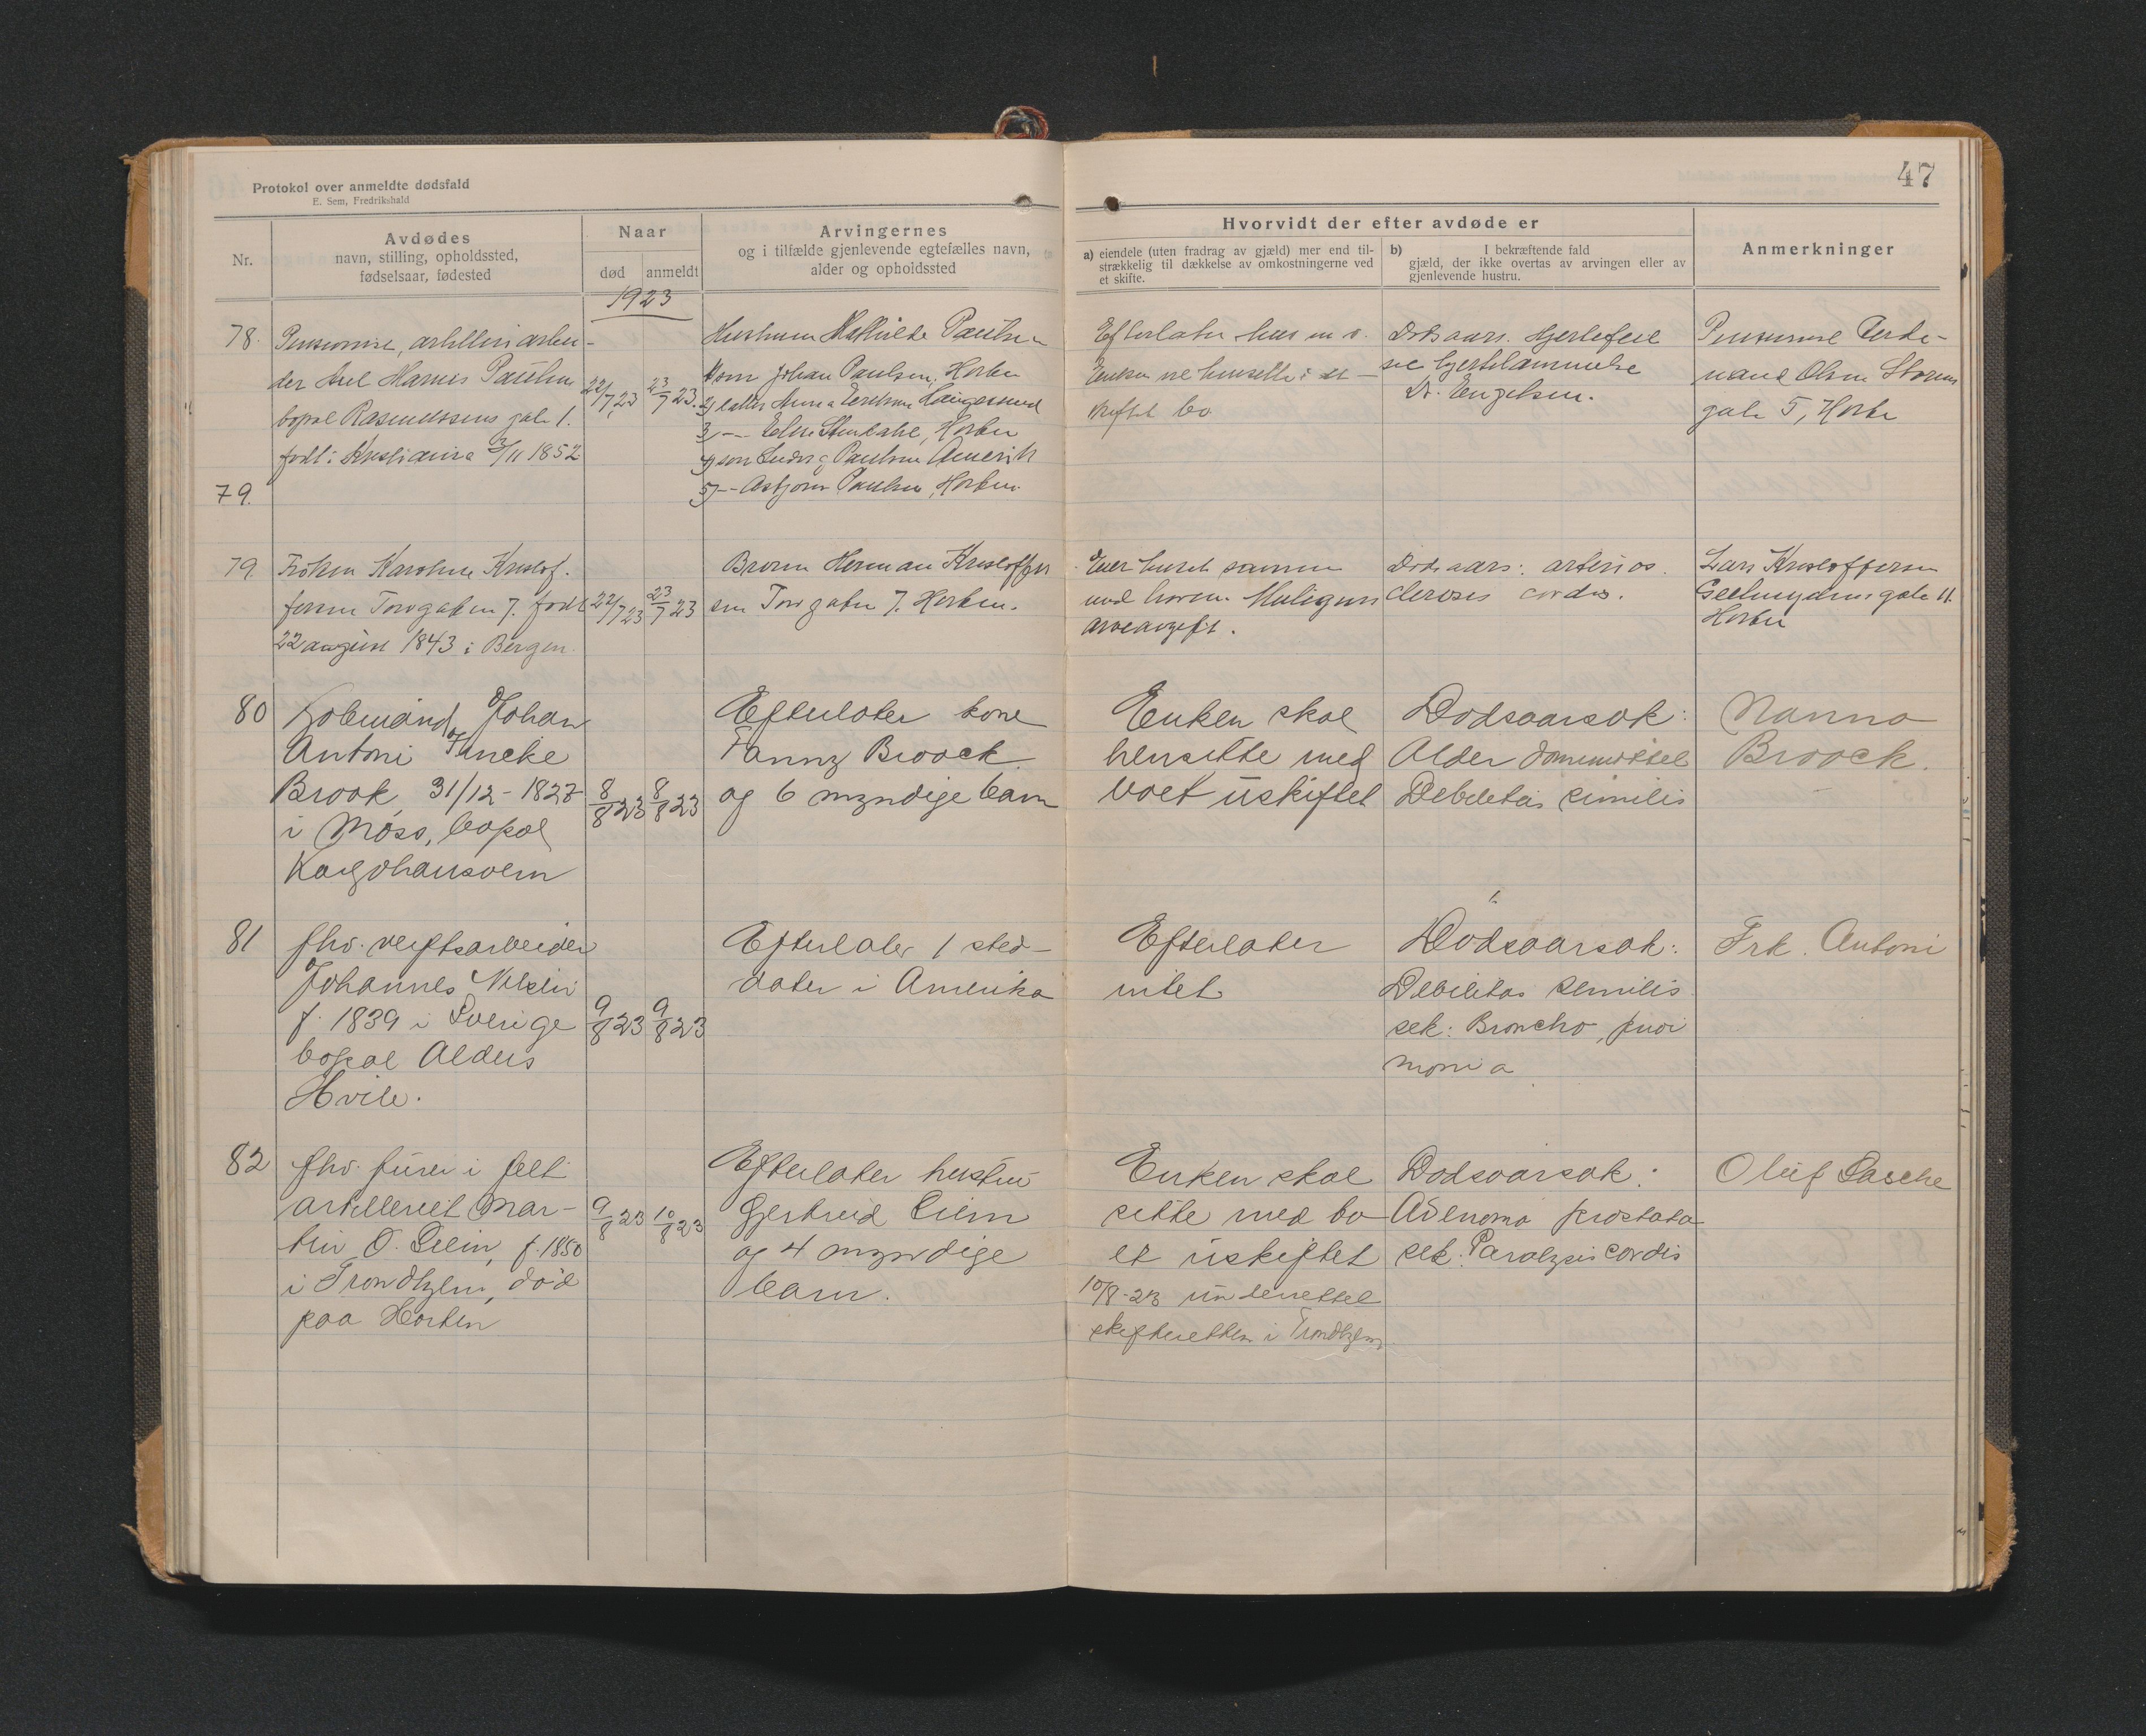 47
Protokol over anmeldte dødsfald
E. Sem, Fredrikshald
Nr.
Avdødes
navn, stilling, opholdssted,
fødselsaar, fødested
Naar
død anmeldt
Arvingernes
og i tilfælde gjenlevende egtefælles navn,
alder og opholdssted
Hvorvidt der efter avdøde er
a) eiendele (uten fradrag av gjæld) mer end til-
strækkelig til dækkelse av omkostningerne ved
et skifte.
b) I bekræftende fald
gjæld, der ikke overtas av arvingen eller av
gjenlevende hustru.
Anmerkninger
1923
78.
Pensionist, artilleriarbei-
der Axel Marius Paulsen
bopæl Rasmussens gate 1.
født i Kristiania 3/11 1852
22/7 23
23/7 23.
Hustruen Mathilde Paulsen
1) søn Johan Paulsen, Horten
2) datter Anna
3) -- Stendahl, Horten
4) søn Ludvig Paulsen Amerik
5) -- Asbjørn Paulsen, Horten.
Efterlater hus m v.
Enken vil hensitte i et
skiftet bo
Dødsaars. Hjertefeil
sec hjertelammelse
Dr. Engelsen.
Pensionist Ferdi-
nand Olsen Storm
gate 5, Horten
79.
79.
Frøken Karoline Kristof-
fersen Torvgaten 7. født
22 august 1843 i Bergen.
22/7 23
23/7 23
Broren Herman Kristoffer
sen Torvgaten 7. Horten.
Eier huset sammen
med broren. Muligens
arveavgift.
Dødsaars: arterios.
clerosis cordis.
Lars Kristoffersen
gate 11.
Horten
80
Johan
Antoni Tincke
Brook 31/12 - 1827
i Moss, bopæl
Karljohansvern
8/8 23
8/8 23
Efterlater kone
Fanny Broock
og 6 myndige barn
Enken skal
hensitte med
boet uskiftet
Dødsaarsak:
Alder
Debilitas similis
Nanna
Broock.
81
fhv. verftsarbeider
Johannes Nilsen
f. 1839 i Sverige
bopæl Alders
Hvile.
9/8 23
9/8 23
Efterlater 1 sted-
dater i Amerika
Efterlater
intet
Dødsaarsak:
Debilitas semilis
sek: Broncho, pnoi
monia
Frk. Antoni
82
fhv. furer i felt
artilleriet Mar-
tin O. Leein, f. 1850
i Trondhjem, død
paa Horten
9/8 23
10/8 23
Efterlater hustru
Gjertrud
og 4 myndige
barn.
Enken skal
sitte med bo
et uskiftet
10/8-23 underrettet
skifteretten i Trondhjem
Dødsaarsak:
Adenoma prostata
sek: Paralysis cordis
Oluf Sasche